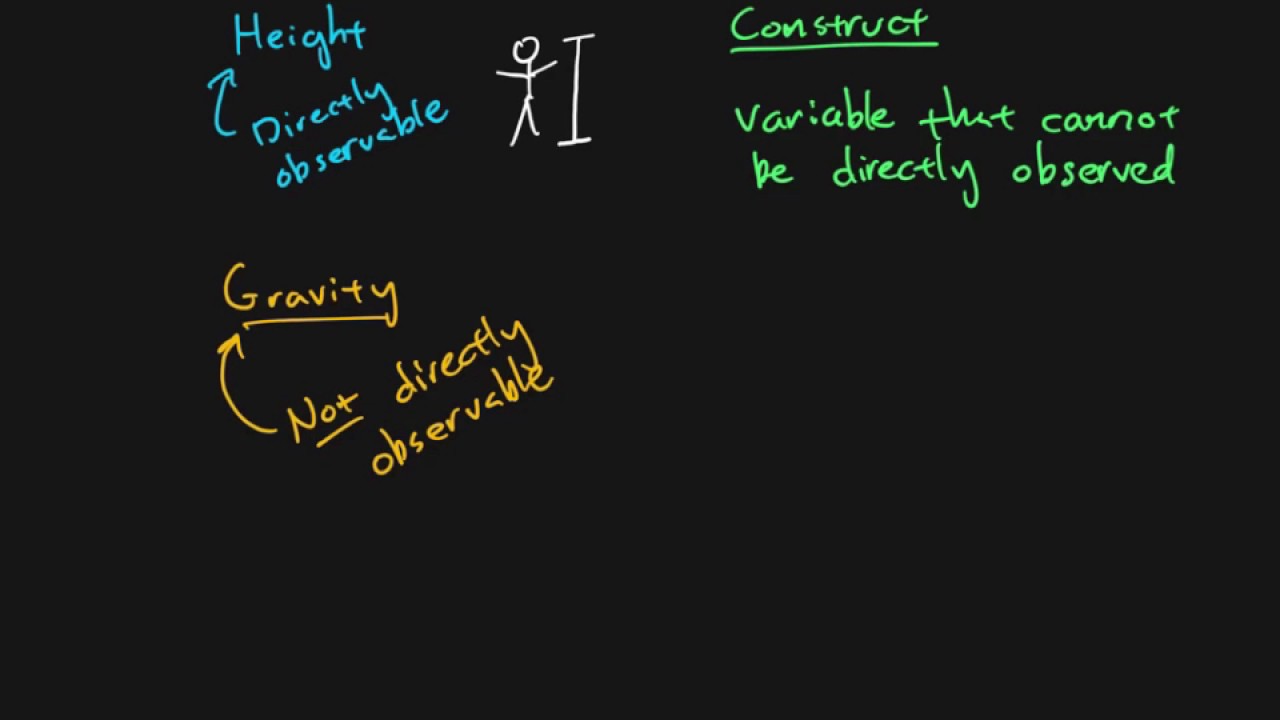 Height
Directly
observable
Construct
variable that cannot
be directly observed
Gravity
Not directly
observable